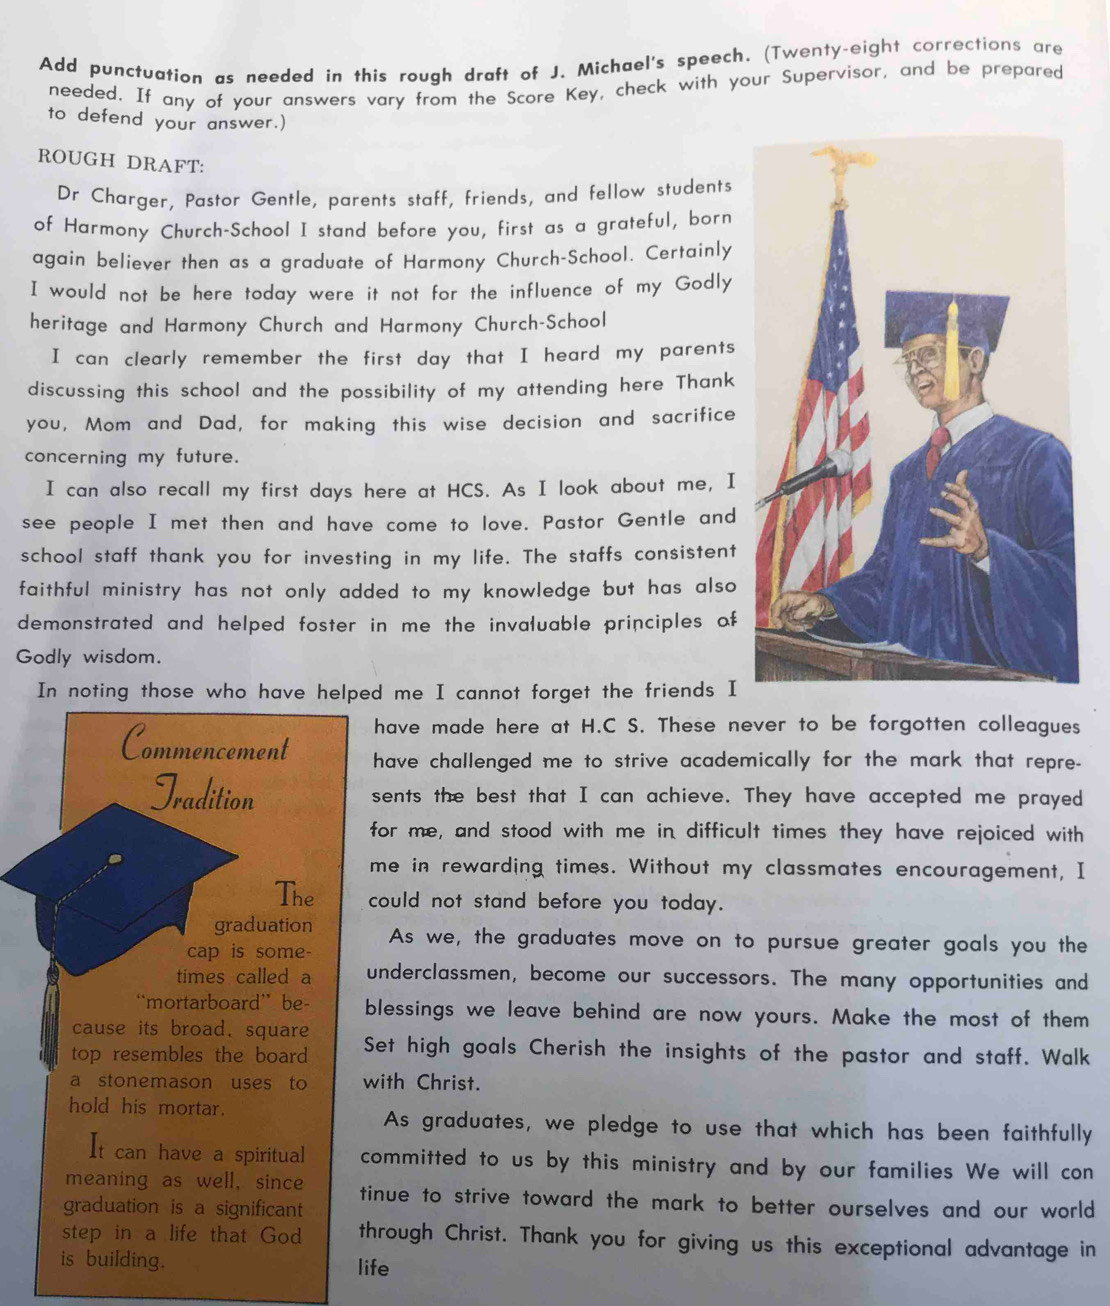 Add punctuation as needed in this rough draft of J. Michael's speech. (Twenty-eight corrections are
needed. If any of your answers vary from the Score Key, check with your Supervisor, and be prepared
to defend your answer.)
ROUGH DRAFT:
Dr Charger, Pastor Gentle, parents staff, friends, and fellow students
of Harmony Church-School I stand before you, first as a grateful, born
again believer then as a graduate of Harmony Church-School. Certainly
I would not be here today were it not for the influence of my Godly
heritage and Harmony Church and Harmony Church-School
I can clearly remember the first day that I heard my parents
discussing this school and the possibility of my attending here Thank
you, Mom and Dad, for making this wise decision and sacrifice
concerning my future.
I can also recall my first days here at HCS. As I look about me, I
see people I met then and have come to love. Pastor Gentle and
school staff thank you for investing in my life. The staffs consistent
faithful ministry has not only added to my knowledge but has also
demonstrated and helped foster in me the invaluable principles of
Godly wisdom.
In noting those who have helped me I cannot forget the friends I
have made here at H.C S. These never to be forgotten colleagues
have challenged me to strive academically for the mark that repre-
sents the best that I can achieve. They have accepted me prayed
for me, and stood with me in difficult times they have rejoiced with
me in rewarding times. Without my classmates encouragement, I
could not stand before you today.
As we, the graduates move on to pursue greater goals you the
underclassmen, become our successors. The many opportunities and
blessings we leave behind are now yours. Make the most of them
Set high goals Cherish the insights of the pastor and staff. Walk
with Christ.
As graduates, we pledge to use that which has been faithfully
committed to us by this ministry and by our families We will con
tinue to strive toward the mark to better ourselves and our world
through Christ. Thank you for giving us this exceptional advantage in
life
Commencement
Tradition
The
graduation
cap is some-
times called a
"mortarboard" be-
cause its broad, square
top resembles the board
a stonemason uses to
hold his mortar.
It can have a spiritual
meaning as well, since
graduation is a significant
step in a life that God
is building.